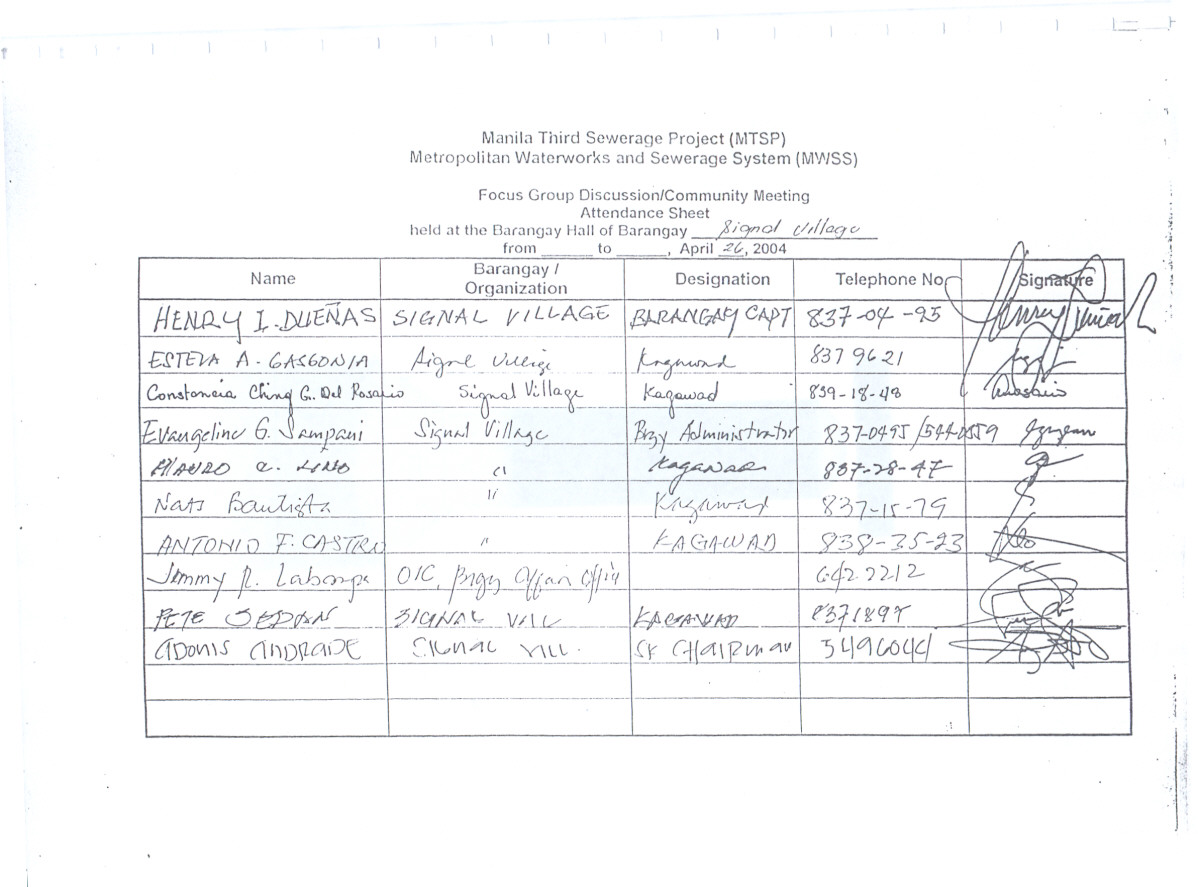 Manila Third Sewerage Project (MTSP)
Metropolitan Waterworks and Sewerage System (MWSS)
Focus Group Discussion/Community Meeting
Attendance Sheet
held at the Barangay Hall of Barangay Signal Village
from ______ to ______, April 26, 2004
Name Barangay / Organization Designation Telephone No. Signature
HENRY I. DUEÑAS SIGNAL VILLAGE BARANGAY CAPT 837-04-95
ESTELA A. GASGONIA Signal Village Kagawad 837 96 21
Constancia Ching G. Del Rosario Signal Village Kagawad 839-18-48
Evangeline G. Sampani Signal Village Brgy Administrator 837-0495 /544-0559
MAURO C. LINO " Kagawad 837-28-47
Nats Bautista " Kagawad 837-15-79
ANTONIO F. CASTRO " KAGAWAD 838-35-23
Jimmy R. OIC, Brgy Affair Office 642 2212
PETE SIGNAL VILL KAGAWAD 8371897
ADONIS ANDRADE SIGNAL VILL. SK CHAIRMAN